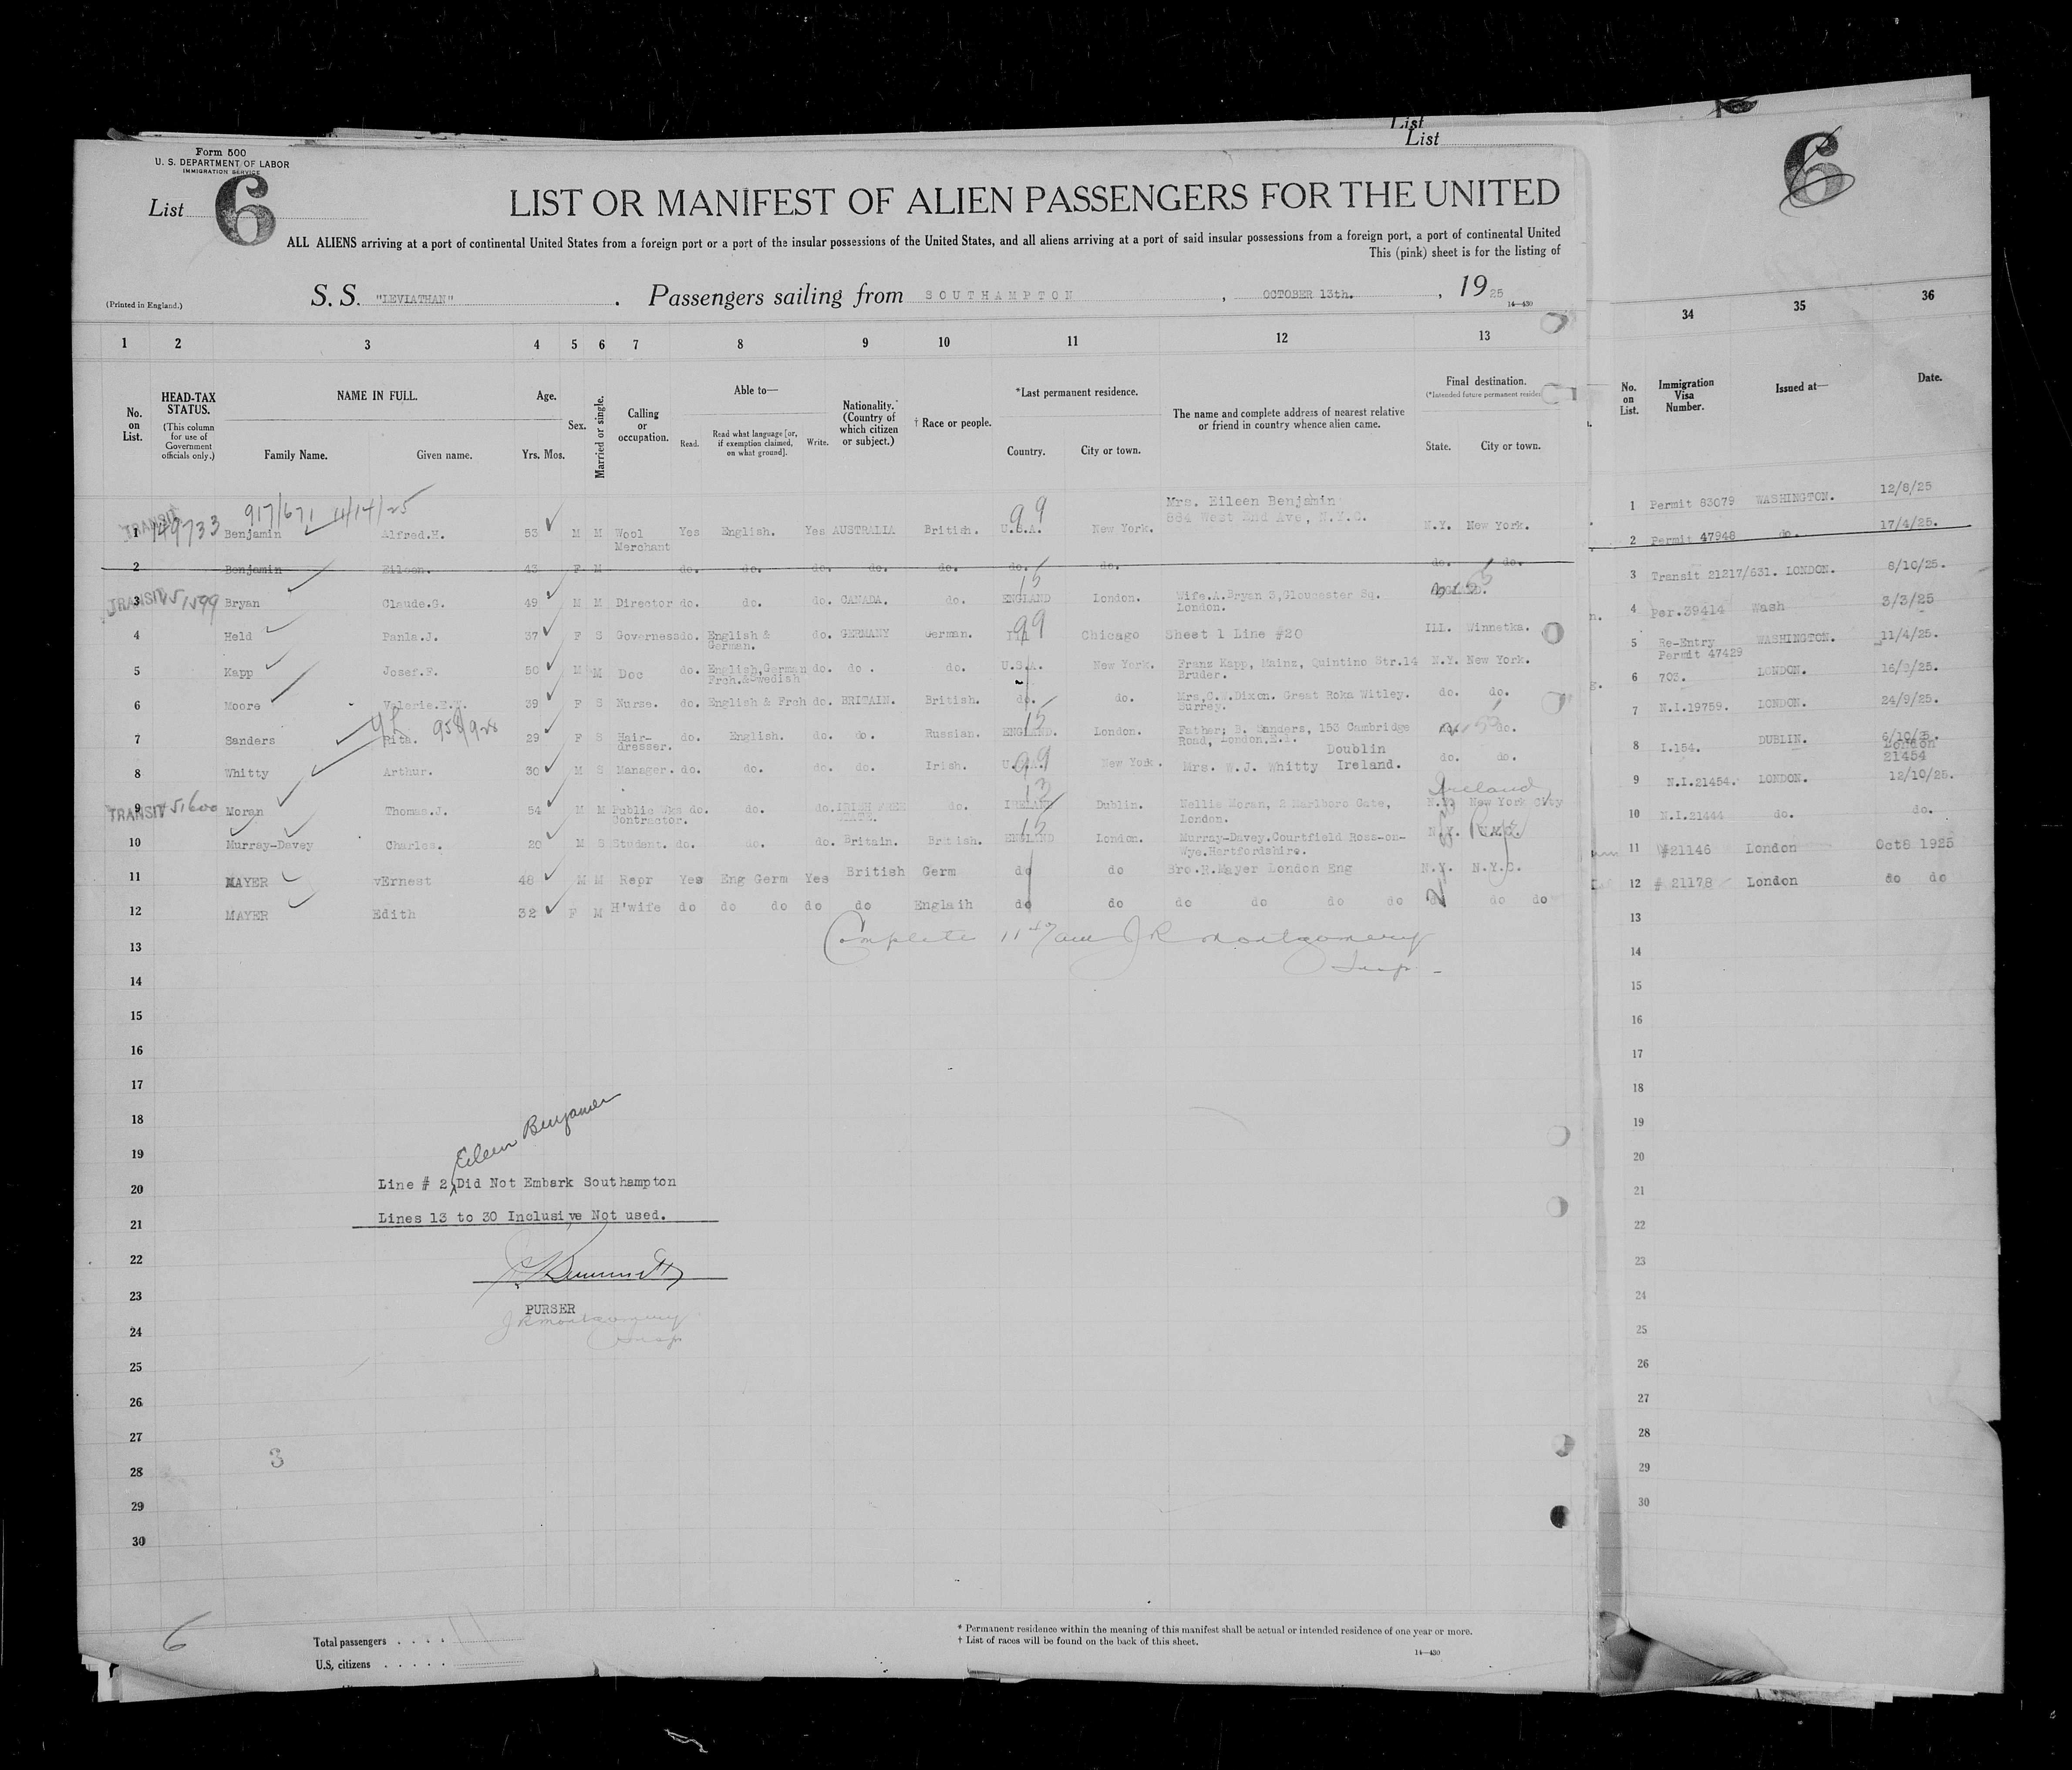 List
List
Form 500
U. S. DEPARTMENT OF LABOR
IMMIGRATION SERVICE
List 6
6
LIST OR MANIFEST OF ALIEN PASSENGERS FOR THE UNITED
ALL ALIENS arriving at a port of continental United States from a foreign port or a port of the insular possessions of the United States, and all aliens arriving at a port of said insular possessions from a foreign port, a port of continental United
This (pink) sheet is for the listing of
(Printed in England.) S. S. "LEVIATHAN" . Passengers sailing from SOUTHAMPTON , OCTOBER 13th. , 19 25
14—430
1 2 3 4 5 6 7 8 9 10 11 12 13 34 35 36
No. on List.
HEAD-TAX STATUS.
(This column for use of Government officials only.)
NAME IN FULL.
Family Name. Given name.
Age.
Yrs. Mos.
Sex.
Married or single.
Calling or occupation.
Able to—
Read. Read what language [or, if exemption claimed, on what ground]. Write.
Nationality. (Country of which citizen or subject.)
† Race or people.
*Last permanent residence.
Country. City or town.
The name and complete address of nearest relative or friend in country whence alien came.
Final destination.
State. City or town.
No. on List.
Immigration Visa Number.
Issued at—
Date.
917/671 11/14/25
TRANSIT 149733
1 Benjamin Alfred.H. 53 M M Wool Merchant Yes English. Yes AUSTRALIA British. U.S.A. 99 New York. Mrs. Eileen Benjamin 884 West End Ave, N.Y.C. N.Y. New York.
2 Benjamin Eileen. 43 F M do. do. do. do. do. do. do. do. do.
TRANSIT 51599
3 Bryan Claude.G. 49 M M Director do. do. do. CANADA. do. ENGLAND 15 London. Wife.A.Bryan 3,Gloucester Sq. London.
4 Held Paula.J. 37 F S Governess do. English & German. do. GERMANY German. 99 Chicago Sheet 1 Line #20 ILL. Winnetka.
5 Kapp Josef.F. 50 M M Doc do. English,German Frch.&Swedish do. do. do. U.S.A. New York. Franz Kapp, Mainz, Quintino Str.14 Bruder. N.Y. New York.
6 Moore Valerie.E.Y. 39 F S Nurse. do. English & Frch do. BRITAIN. British. do. do. Mrs.C.W.Dixon. Great Roka Witley. Surrey. do. do.
7 Sanders Rita. 29 F S Hair-dresser. do. English. do. do. Russian. ENGLAND. 15 London. Father; B. Sanders, 153 Cambridge Road, London.E.1. do.
8 Whitty Arthur. 30 M S Manager. do. do. do. do. Irish. 99 New York. Mrs. W.J. Whitty Doublin Ireland. do. do.
TRANSIT 51600
9 Moran Thomas.J. 54 M M Public Wks Contractor. do. do. do. IRISH FREE STATE. do. IRELAND 13 Dublin. Nellie Moran, 2 Marlboro Gate, London. Ireland N.Y. New York City
10 Murray-Davey Charles. 20 M S Student. do. do. do. Britain. British. ENGLAND 15 London. Murray-Davey.Courtfield Ross-on-Wye.Hertfordshire. N.Y. N.Y.
11 MAYER vErnest 48 M M Repr Yes Eng Germ Yes British Germ do do Bro.R.Mayer London Eng N.Y. N.Y.C.
12 MAYER Edith 32 F M H'wife do do do do do Englaih do do do do do do do do
1 Permit 83079 WASHINGTON. 12/8/25
2 Permit 47948 do. 17/4/25.
3 Transit 21217/631. LONDON. 8/10/25.
4 Per.39414 Wash 3/3/25
5 Re-Entry Permit 47429 WASHINGTON. 11/4/25.
6 703. LONDON. 16/9/25.
7 N.I.19759. LONDON. 24/9/25.
8 I.154. DUBLIN. 6/10/25.
London 21454
9 N.I.21454. LONDON. 12/10/25.
10 N.I.21444 do. do.
11 #21146 London Oct8 1925
12 # 21178 London do do
Complete 11 40/am J R Montgomery
Insp.
13 13
14 14
15 15
16 16
17 17
18 18
19 19
20 20
21 21
22 22
23 23
24 24
25 25
26 26
27 27
28 28
29 29
30 30
Eileen Benjamin
Line # 2 Did Not Embark Southampton
Lines 13 to 30 Inclusive Not used.
PURSER
J R Montgomery
Insp
3
6
Total passengers . . . . 11
U.S. citizens . . . . .
* Permanent residence within the meaning of this manifest shall be actual or intended residence of one year or more.
† List of races will be found on the back of this sheet.
14—430